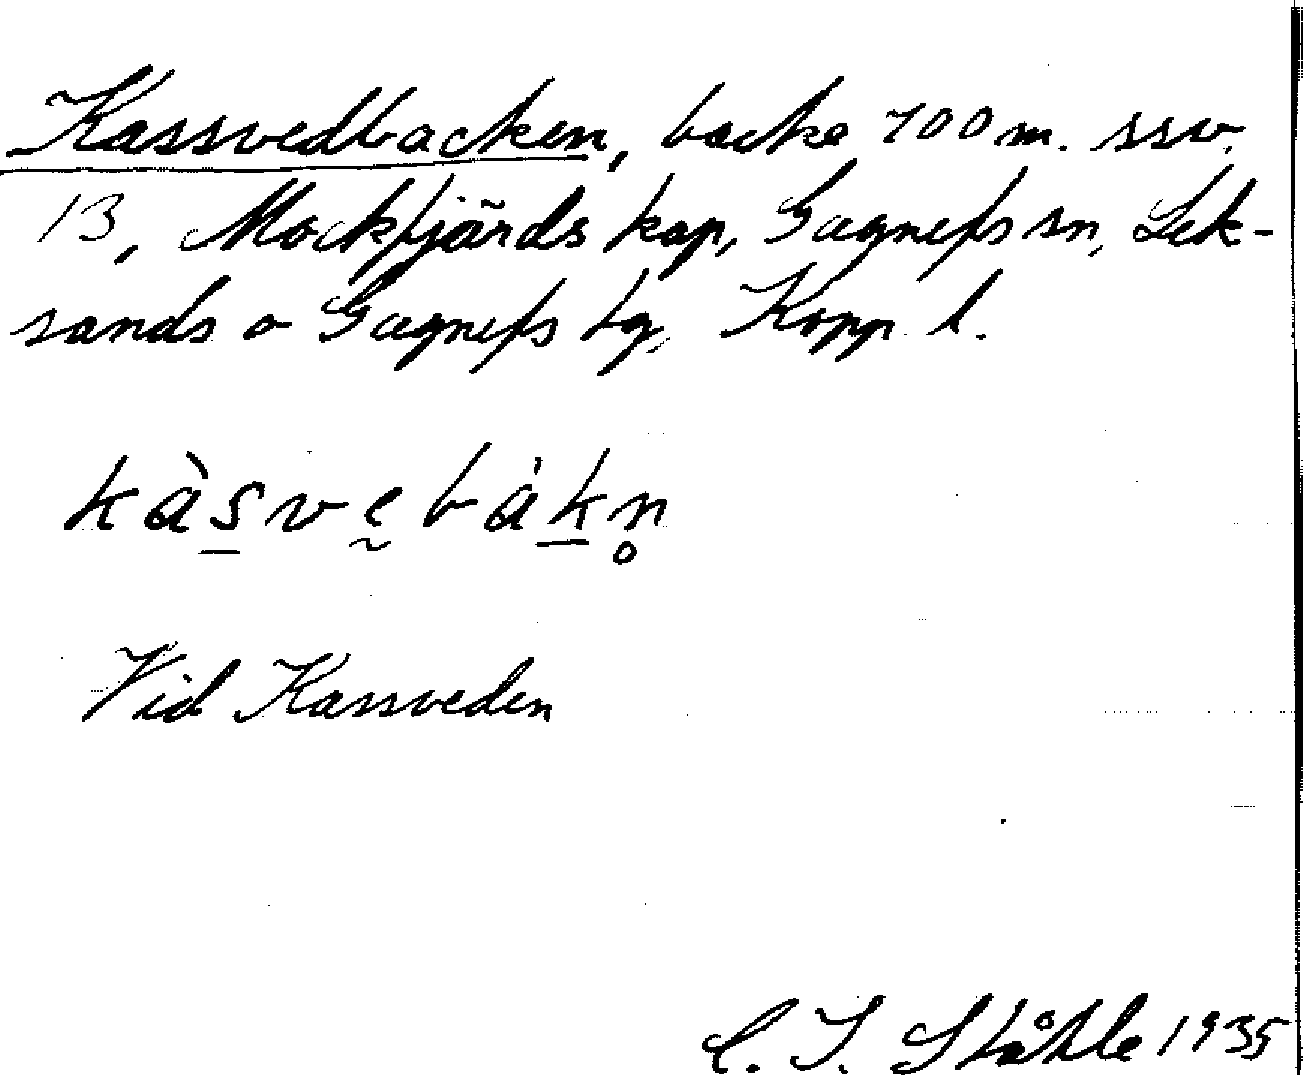 Kassvedbacken, backe 700 m. ssv.
13, Mockfjärds kap, Gagnefs sn, Lek-
sands o Gagnefs tg, Kopp. l.
kàs̲vḛbák̲n̥
Vid Kassveden
C. I. Ståhle 1935